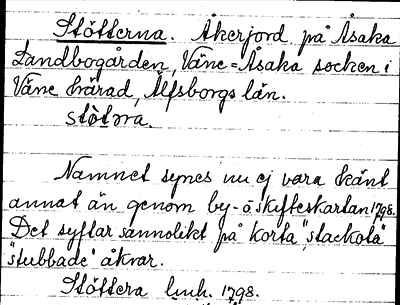 Stötterna. Åkerjord på Åsaka
Landbogården, Väne-Åsaka socken i
Väne härad, Älfsborgs län.
stòtəra.
Namnet synes nu ej vara känt
annat än genom by- å skifteskartan 1798.
Det syftar sannolikt på korta, "stackota"
"stubbade" åkrar.
Stöttera ljuh. 1798.